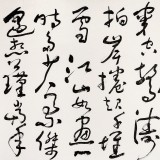 驚濤
拍岸捲起千堆
雪江山如畫一
時多少豪傑
遙想公瑾當年